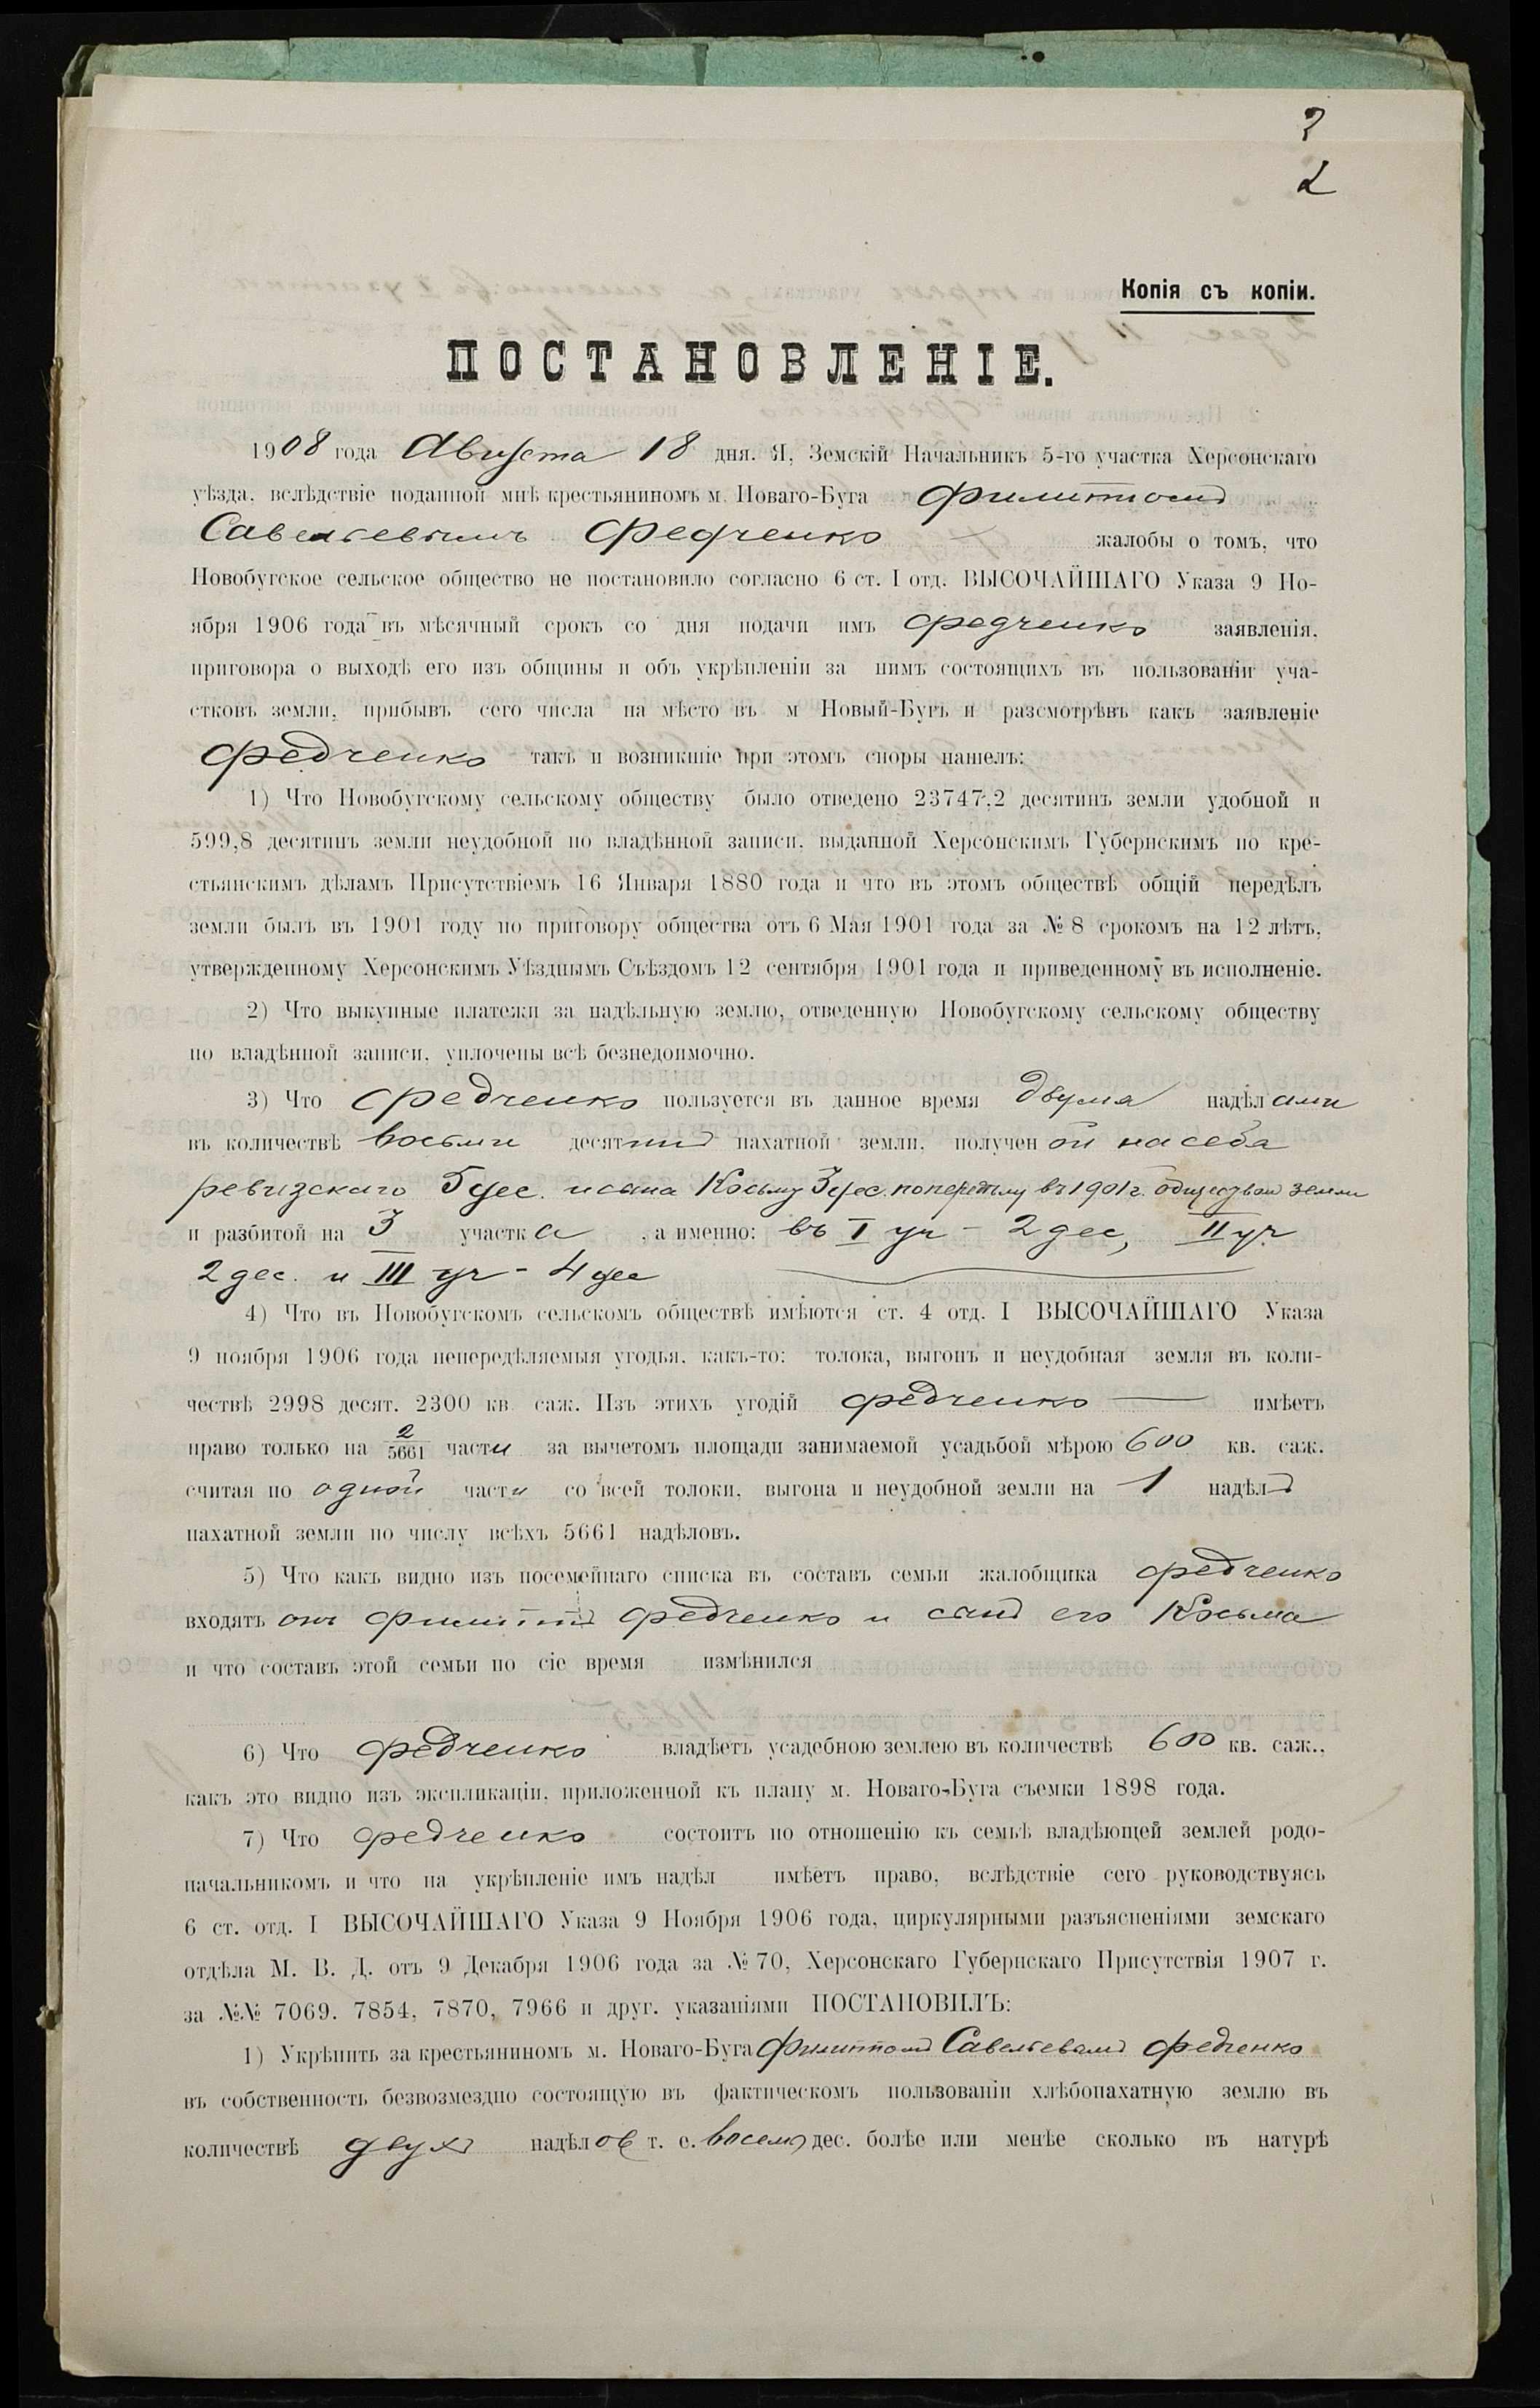 2
2
Копія съ копіи.
ПОСТАНОВЛЕНІЕ.
1908 года Августа 18 дня. Я, Земскій Начальникъ 5-го участка Херсонскаго
уѣзда, вслѣдствіе поданной мнѣ крестьяниномъ м. Новаго-Буга Филиппомъ
Савельевымъ Федченко жалобы о томъ, что
Новобугское сельское общество не постановило согласно 6 ст. I отд. ВЫСОЧАЙШАГО Указа 9 Но-
ября 1906 года въ мѣсячный срокъ со дня подачи имъ Федченко заявленія,
приговора о выходѣ его изъ общины и объ укрѣпленіи за нимъ состоящихъ въ пользованіи уча-
стковъ земли, прибывъ сего числа на мѣсто въ м Новый-Бугъ и разсмотрѣвъ какъ заявленіе
Федченко такъ и возникшіе при этомъ споры нашелъ:
1) Что Новобугскому сельскому обществу было отведено 23747,2 десятинъ земли удобной и
599,8 десятинъ земли неудобной по владѣнной записи, выданной Херсонскимъ Губернскимъ по кре-
стьянскимъ дѣламъ Присутствіемъ 16 Января 1880 года и что въ этомъ обществѣ общій передѣлъ
земли былъ въ 1901 году по приговору общества отъ 6 Мая 1901 года за № 8 срокомъ на 12 лѣтъ,
утвержденному Херсонскимъ Уѣзднымъ Съѣздомъ 12 сентября 1901 года и приведенному въ исполненіе.
2) Что выкупные платежи за надѣльную землю, отведенную Новобугскому сельскому обществу
по владѣнной записи, уплочены всѣ безнедоимочно.
3) Что Федченко пользуется въ данное время двумя надѣлами
въ количествѣ восьми десятинъ пахатной земли, полученой на себя
ревизскаго 5 дес. и сына Косьму 3 дес. по передѣлу въ 1901 г. обществомъ земли
и разбитой на 3 участка, а именно: въ I уч - 2 дес, II уч
2 дес. и III уч - 4 дес
4) Что въ Новобугскомъ сельскомъ обществѣ имѣются ст. 4 отд. I ВЫСОЧАЙШАГО Указа
9 ноября 1906 года непередѣляемыя угодья, какъ-то: толока, выгонъ и неудобная земля въ коли-
чествѣ 2998 десят. 2300 кв. саж. Изъ этихъ угодій Федченко имѣетъ
право только на 2/5661 части за вычетомъ площади занимаемой усадьбой мѣрою 600 кв. саж.
считая по одной части со всей толоки, выгона и неудобной земли на 1 надѣлъ
пахатной земли по числу всѣхъ 5661 надѣловъ.
5) Что какъ видно изъ посемейнаго списка въ составъ семьи жалобщика Федченко
входятъ онъ Филиппъ Федченко и сынъ его Косьма
и что составъ этой семьи по сіе время измѣнился
6) Что Федченко владѣетъ усадебною землею въ количествѣ 600 кв. саж.,
какъ это видно изъ экспликаціи, приложенной къ плану м. Новаго-Буга съемки 1898 года.
7) Что Федченко состоитъ по отношенію къ семьѣ владѣющей землей родо-
начальникомъ и что на укрѣпленіе имъ надѣл имѣетъ право, вслѣдствіе сего руководствуясь
6 ст. отд. I ВЫСОЧАЙШАГО Указа 9 Ноября 1906 года, циркулярными разъясненіями земскаго
отдѣла М. В. Д. отъ 9 Декабря 1906 года за № 70, Херсонскаго Губернскаго Присутствія 1907 г.
за №№ 7069. 7854, 7870, 7966 и друг. указаніями ПОСТАНОВИЛЪ:
1) Укрѣпить за крестьяниномъ м. Новаго-Буга Филиппомъ Савельевымъ Федченко
въ собственность безвозмездно состоящую въ фактическомъ пользованіи хлѣбопахатную землю въ
количествѣ двухъ надѣловъ т. е. восемь дес. болѣе или менѣе сколько въ натурѣ